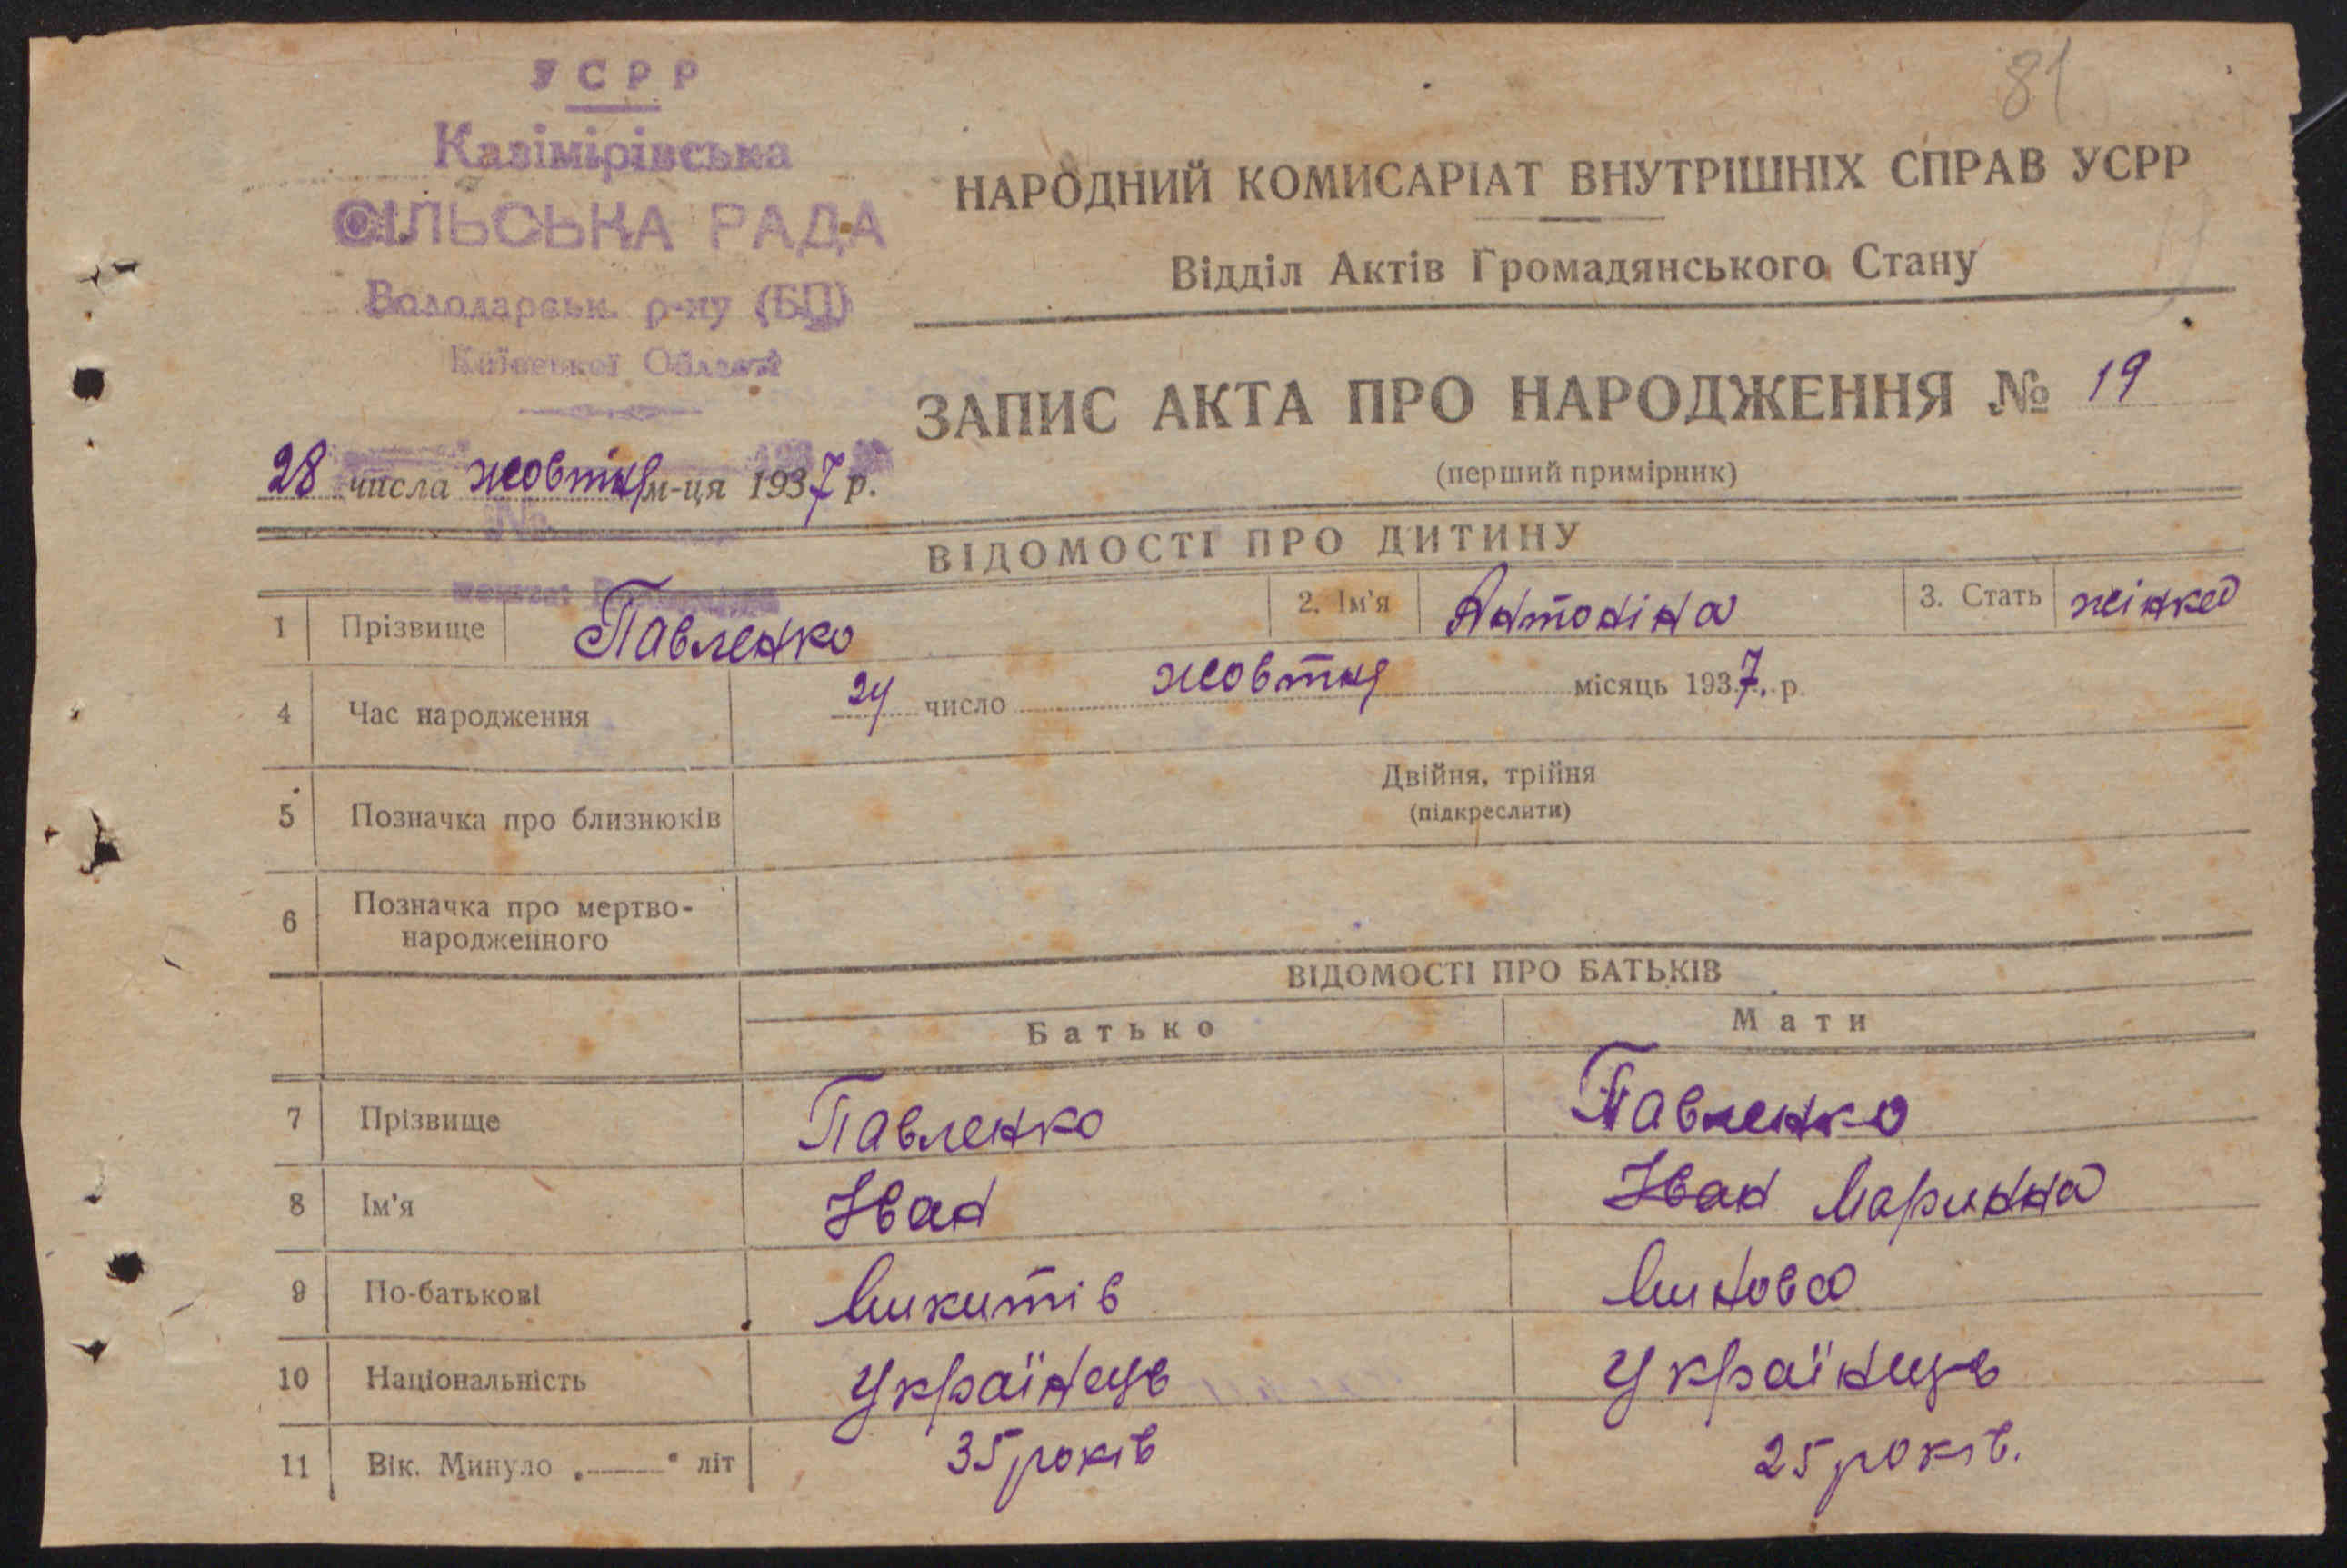 81
УСРР
Казімірівська
СІЛЬСЬКА РАДА
Володарськ. р-ну (БЦ)
Київської Області
НАРОДНИЙ КОМИСАРІАТ ВНУТРІШНІХ СПРАВ УСРР
Відділ Актів Громадянського Стану
ЗАПИС АКТА ПРО НАРОДЖЕННЯ № 19
(перший примірник)
28 числа жовтня м-ця 1937 р.
№
ВІДОМОСТІ ПРО ДИТИНУ
1 Прізвище Павленко 2. Ім'я Антоніна 3. Стать жінка
4 Час народження 24 число жовтня місяць 1937. р.
5 Позначка про близнюків Двійня, трійня
(підкреслити)
6 Позначка про мертво-
народженного
ВІДОМОСТІ ПРО БАТЬКІВ
Батько Мати
7 Прізвище Павленко Павленко
8 Ім'я Іван Іван Маринна
9 По-батькові Микитів Минова
10 Національність Українець Українець
11 Вік. Минуло „——“ літ 35 років 25 років.